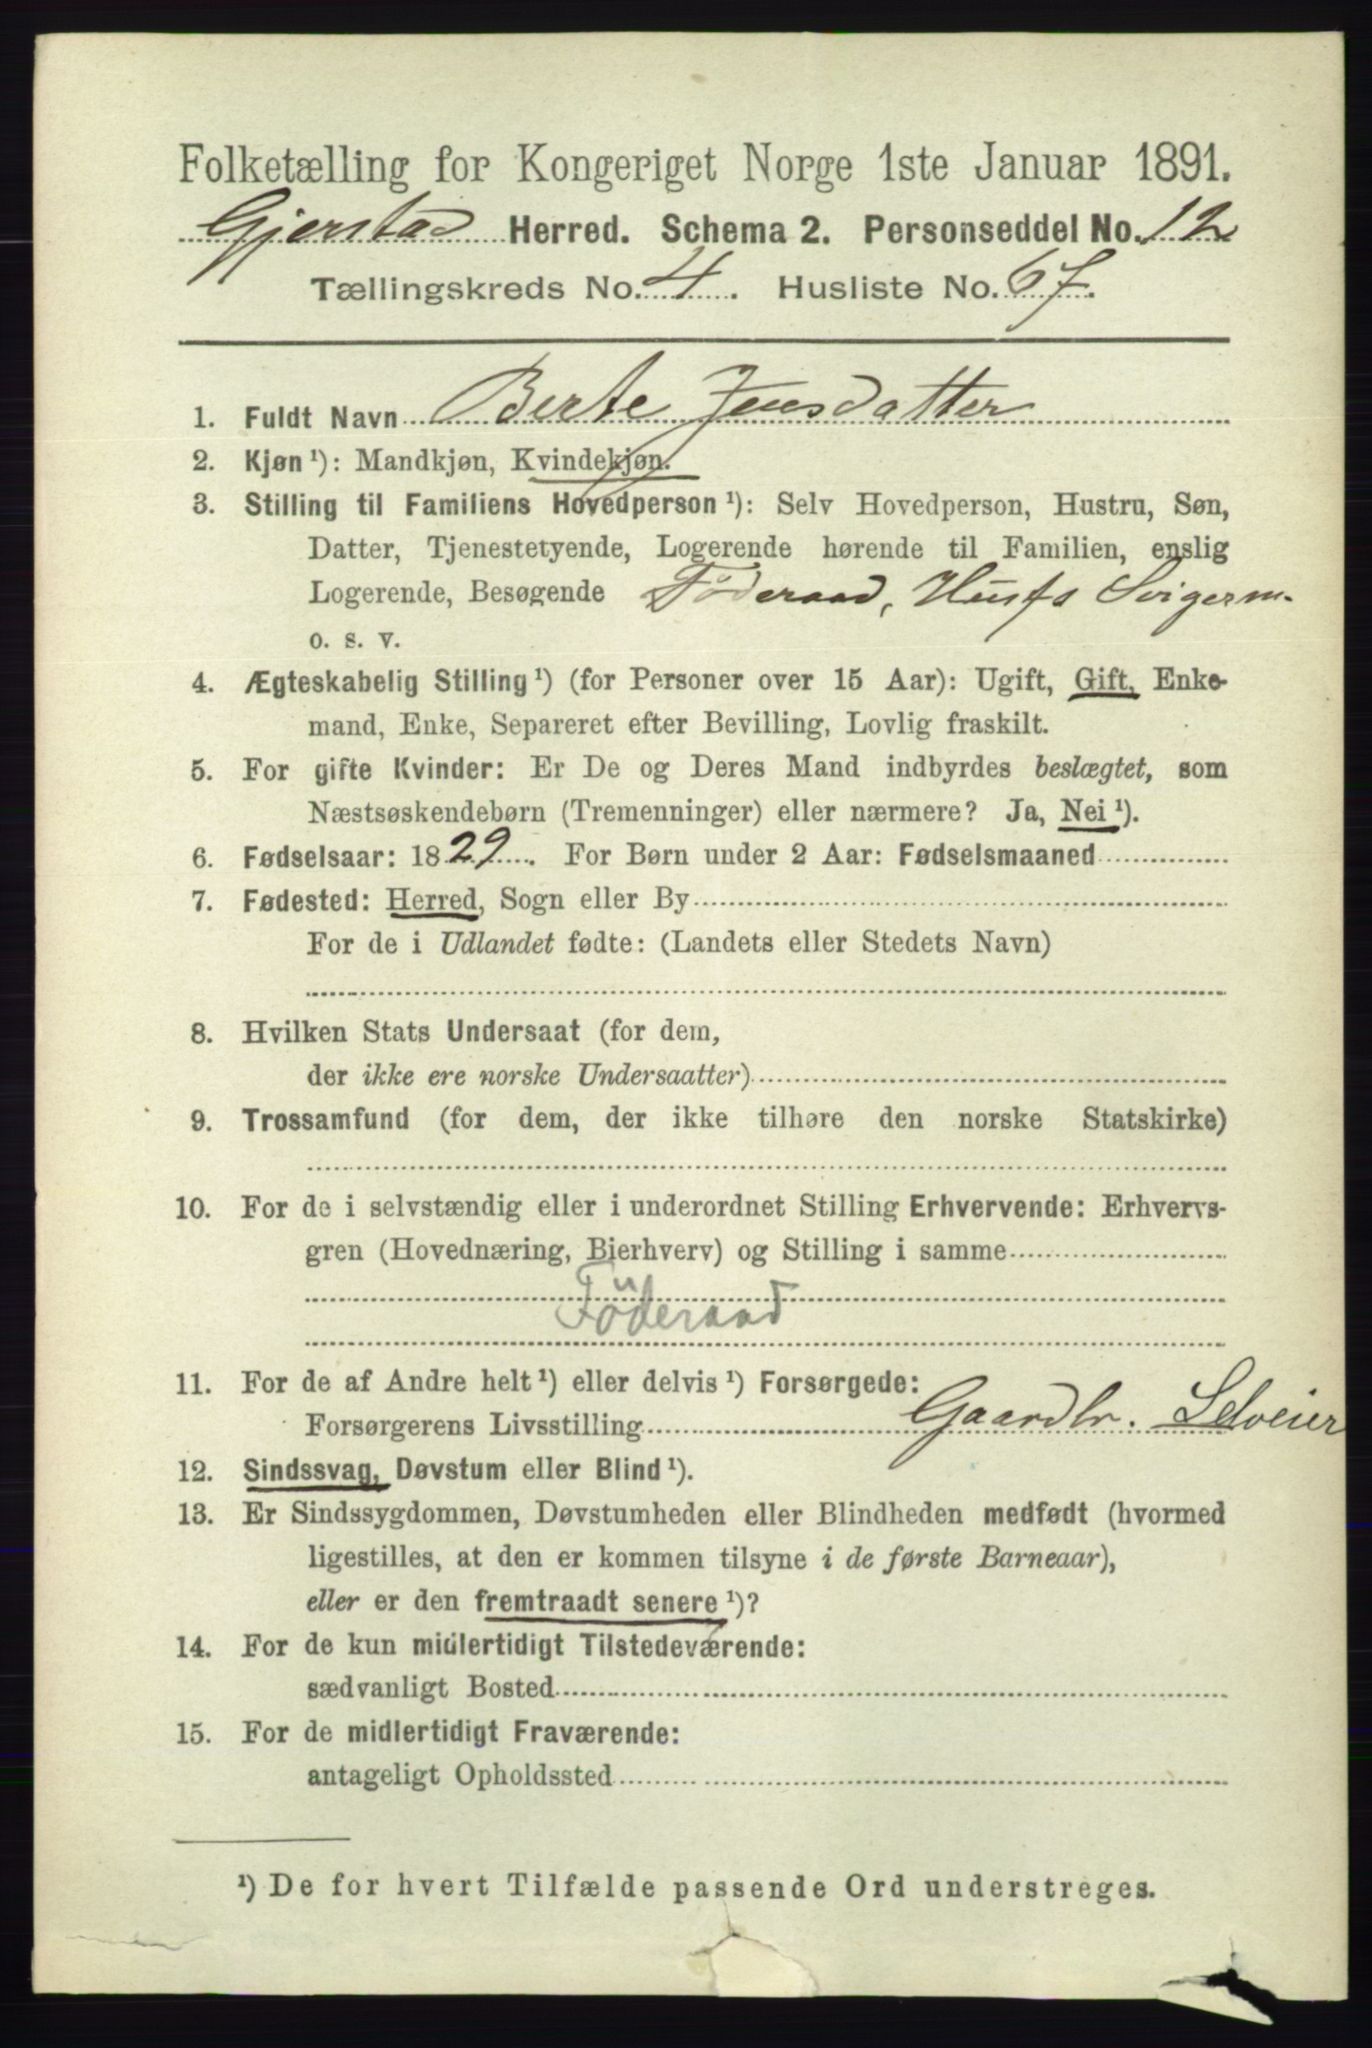 Folketælling for Kongeriget Norge 1ste Januar 1891.
Gjerstad Herred. Schema 2. Personseddel No. 12
Tællingskreds No. 4. Husliste No. 67.
1. Fuldt Navn Berte Jensdatter
2. Kjøn¹): Mandkjøn, Kvindekjøn.
3. Stilling til Familiens Hovedperson¹): Selv Hovedperson, Hustru, Søn,
Datter, Tjenestetyende, Logerende hørende til Familien, enslig
Logerende, Besøgende Föderaad, Husfs Svigerm.
o. s. v.
4. Ægteskabelig Stilling¹) (for Personer over 15 Aar): Ugift, Gift, Enke-
mand, Enke, Separeret efter Bevilling, Lovlig fraskilt.
5. For gifte Kvinder: Er De og Deres Mand indbyrdes beslægtet, som
Næstsøskendebørn (Tremenninger) eller nærmere? Ja, Nei¹).
6. Fødselsaar: 1829. For Børn under 2 Aar: Fødselsmaaned
7. Fødested: Herred, Sogn eller By
For de i Udlandet fødte: (Landets eller Stedets Navn)
8. Hvilken Stats Undersaat (for dem,
der ikke ere norske Undersaatter)
9. Trossamfund (for dem, der ikke tilhøre den norske Statskirke)
10. For de i selvstændig eller i underordnet Stilling Erhvervende: Erhvervs-
gren (Hovednæring, Bierhverv) og Stilling i samme
Föderaad
11. For de af Andre helt¹) eller delvis¹) Forsørgede:
Forsørgerens Livsstilling Gaardbr. Selveier
12. Sindssvag, Døvstum eller Blind¹).
13. Er Sindssygdommen, Døvstumheden eller Blindheden medfødt (hvormed
ligestilles, at den er kommen tilsyne i de første Barneaar),
eller er den fremtraadt senere¹)?
14. For de kun midlertidigt Tilstedeværende:
sædvanligt Bosted
15. For de midlertidigt Fraværende:
antageligt Opholdssted
¹) De for hvert Tilfælde passende Ord understreges.